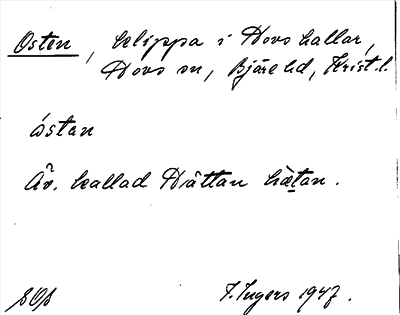 Osten, klippa i Hovs hallar,
Hovs sn, Bjäre hd, Krist. l.
óstan
Äv. kallad Hättan hæ̀tan.
I. Ingers 1947.